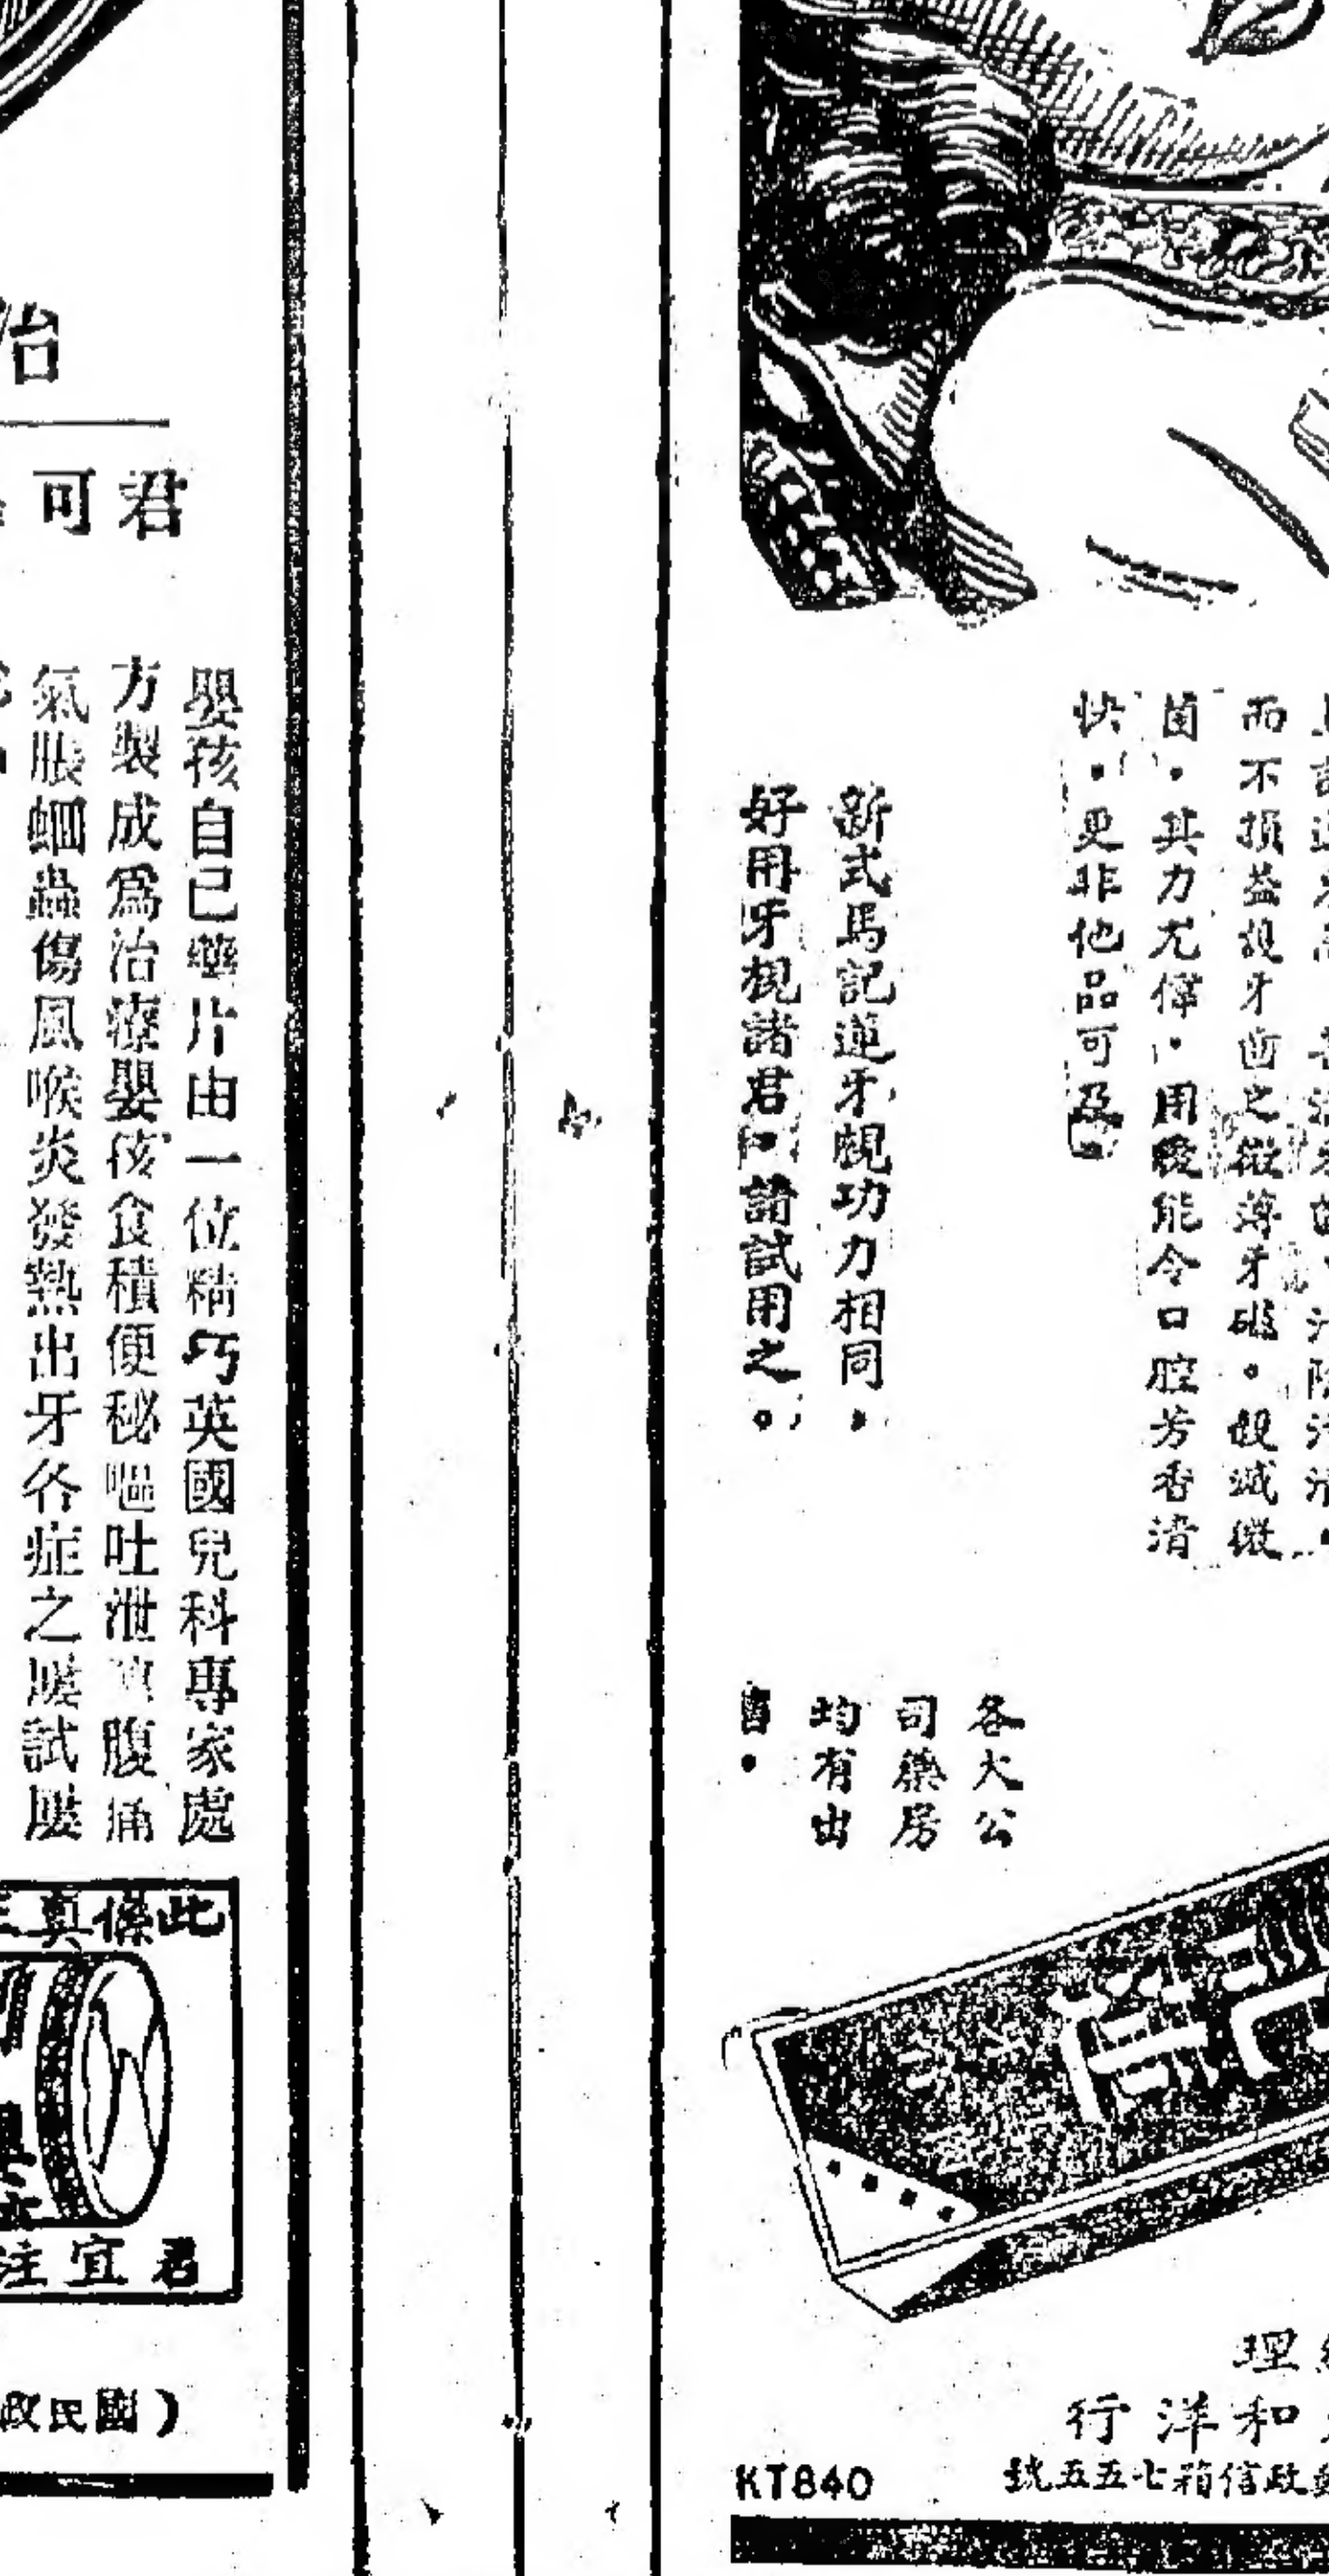 治
君可
嬰孩自己藥片由一位精巧英國兒科專家處
方製成爲治療嬰孩食積便秘嘔吐泄瀉腹痛
氣脹蛔蟲傷風喉炎發熱出牙各症之屢試屢
此係真
君宜注
(國民政
而不損蓋護牙齒之微薄牙磁。殺滅微
菌。其力尤偉。用後能令口腔芳香清
快。更非他品可及。
新式馬記蓮牙梘功力相同。
好用牙梘諸君。請試用之。
各大公
司藥房
均有出
售。
理
和洋行
郵政信箱七五五號
KT840